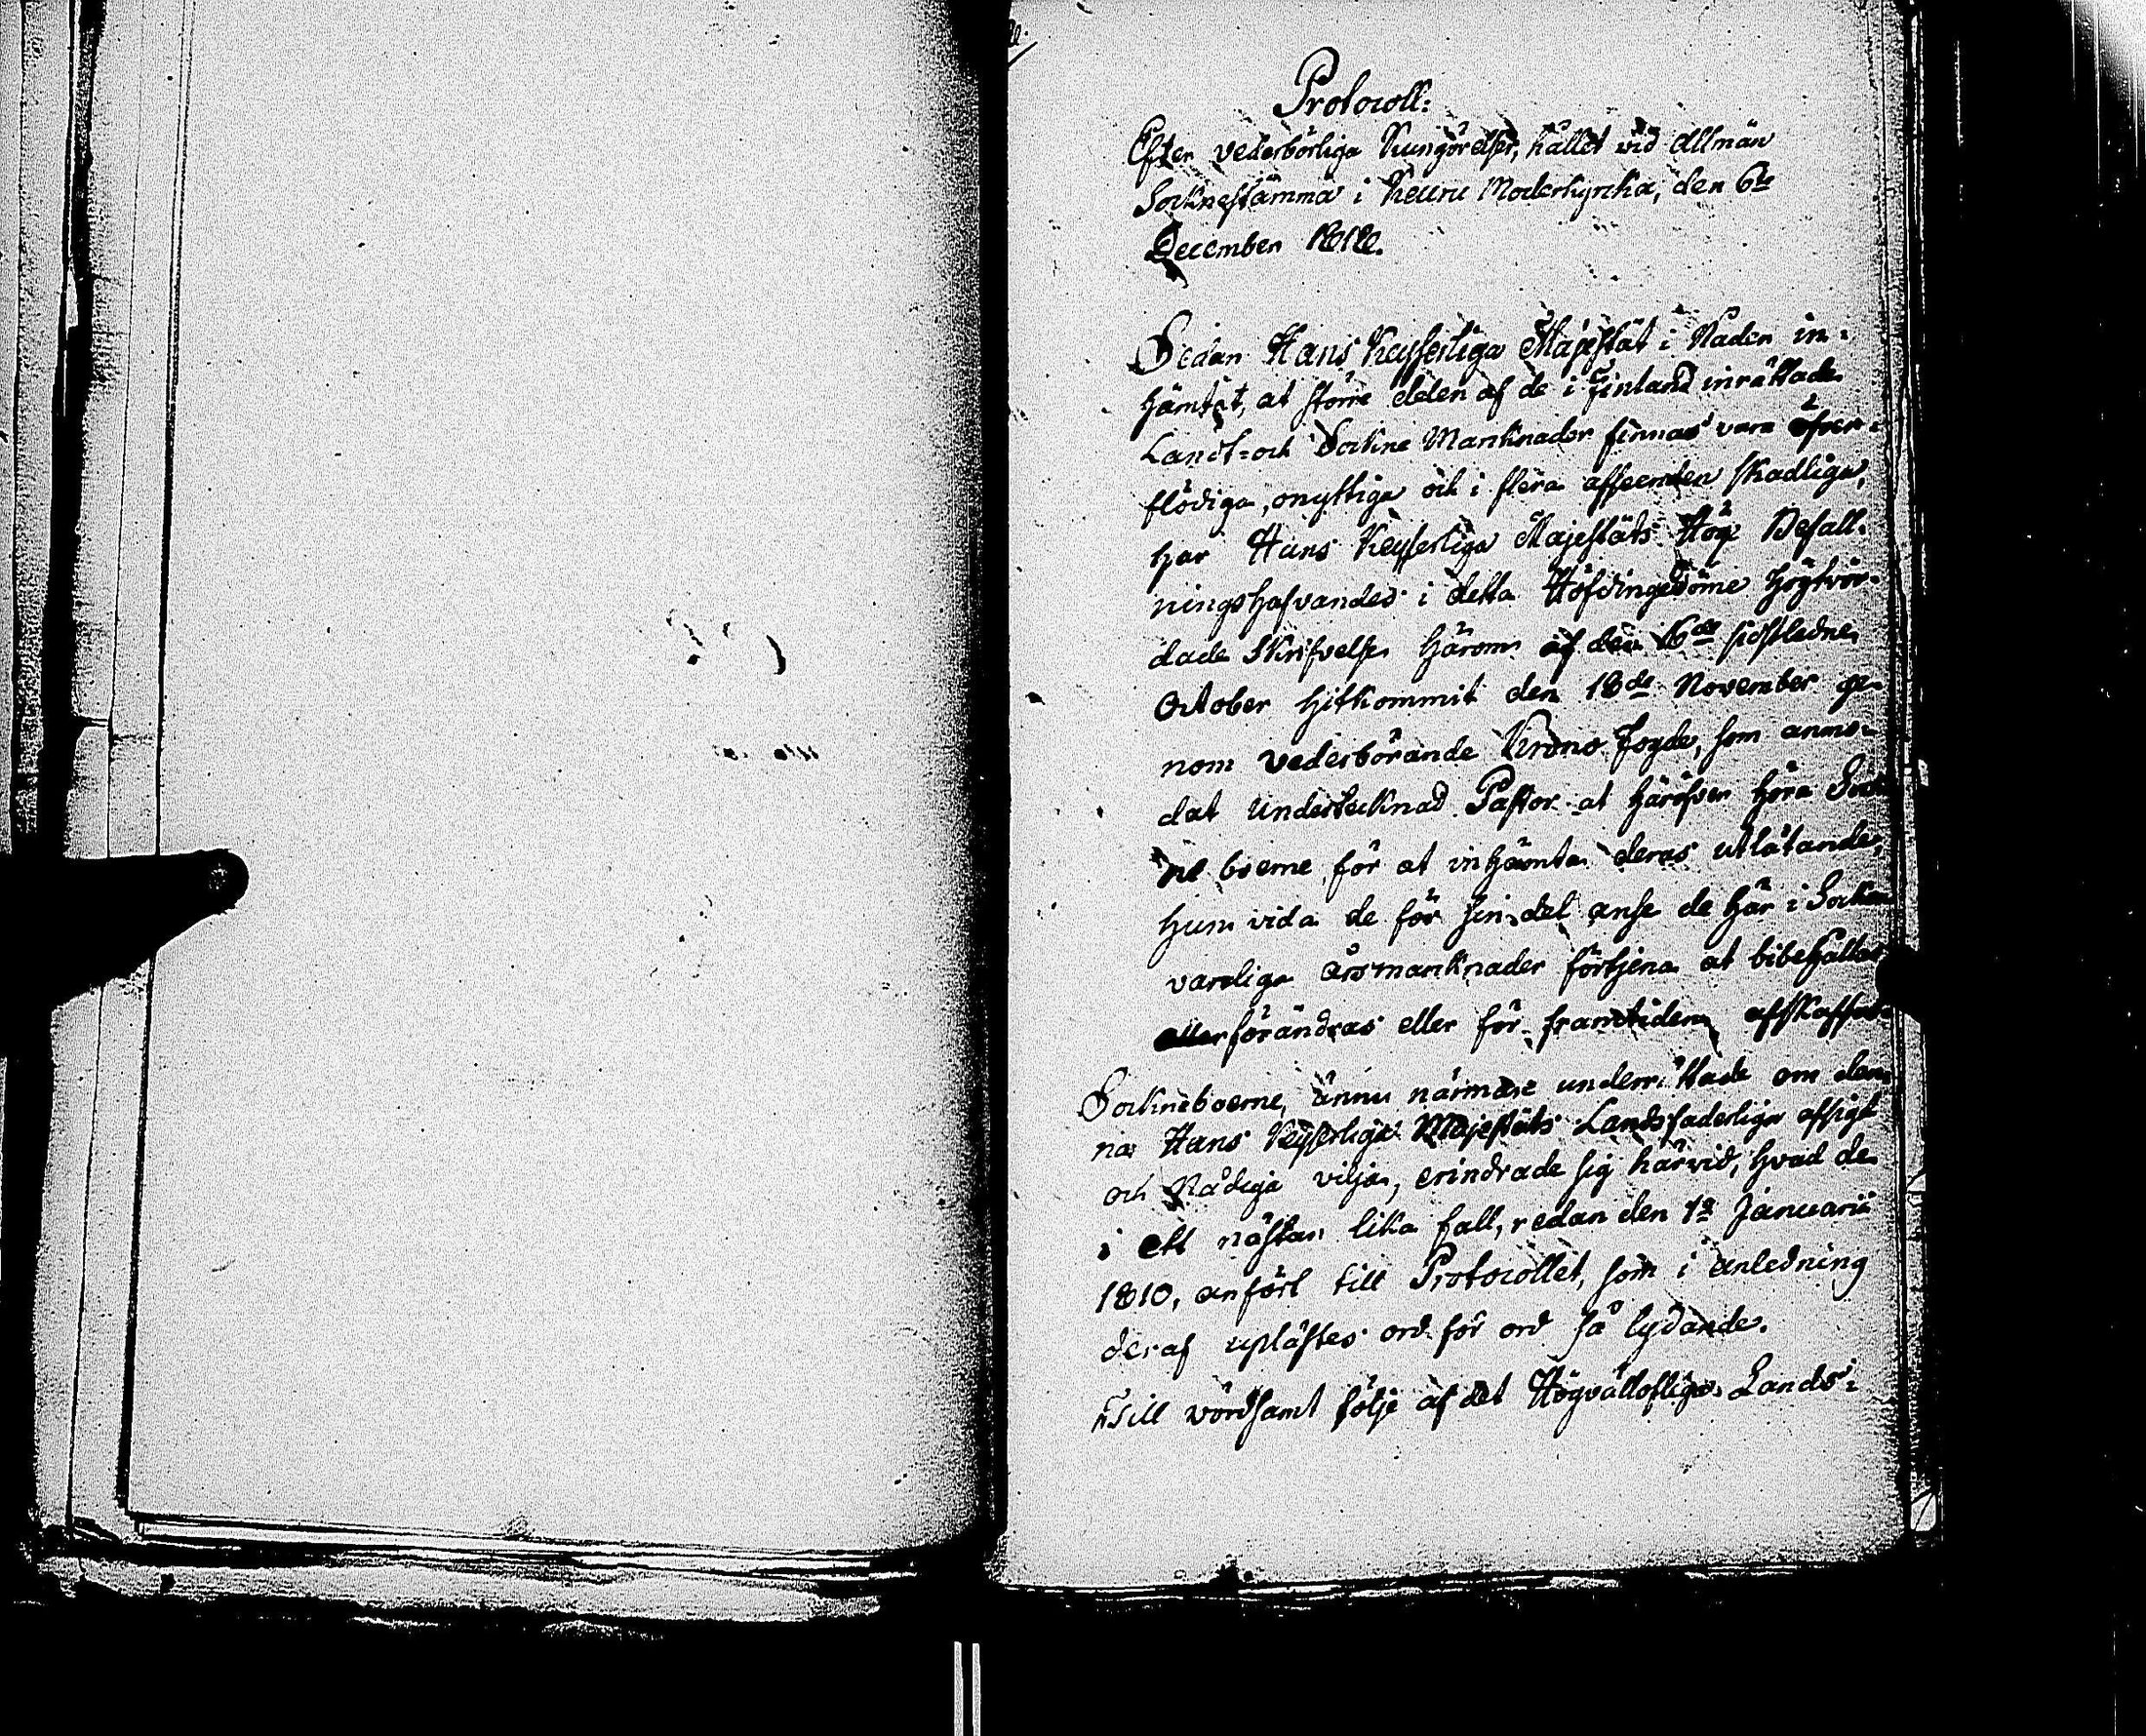 Protocoll:
Efter vederbörliga Kungörelser, hållit vid Allmän
Socknestämma i Keuru Moderkyrcka, den 6te
December 1812.
Sedan Hans Keyserliga Majestät i Nåder in-
hämtat, at större delen af de i Finland inrättade
Landt- och Sockne Marknader finnas vara öfver-
flödiga, onyttiga och i flera afseenden skadliga,
har Hans Keyserliga Majestäts Höge Befall-
ningshafvandes i detta Höfdingedöme högtvör-
dade Skrifvelse härom af den 16de sidstledne
October hitkommit den 18de November ge-
nom vederbörande Krono Fogde, som anmo-
dat undertecknad Pastor at häröfver höra Sock-
ne boerne för at inhämta deras utlåtande,
huru vida de för sin del anse de här i Socken
vanliga årsmarknader förtjena at bibehållas
eller förändras eller för framtiden afskaffas.
Sockneboerne, ännu närmare underrättade om den-
na Hans Keyserliga Majestäts Landsfaderliga afsigt
och Nådiga vilja, erindrade sig härvid, hvad de
i ett nästan lika fall, redan den 1a Januarii
1810, anfört till Protocollet, som i anledning
deraf uplästes ord för ord så lydande.
Till vördsamt följe af det Högvällofliga Lands-